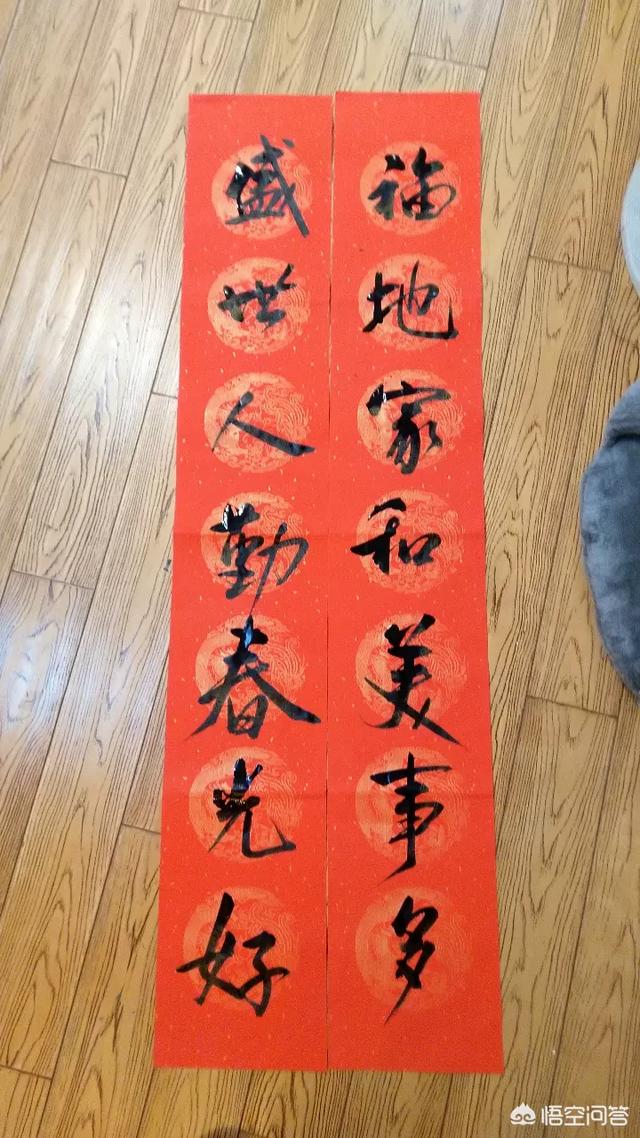 福地家和美事多
盛世人勤春光好
悟空问答